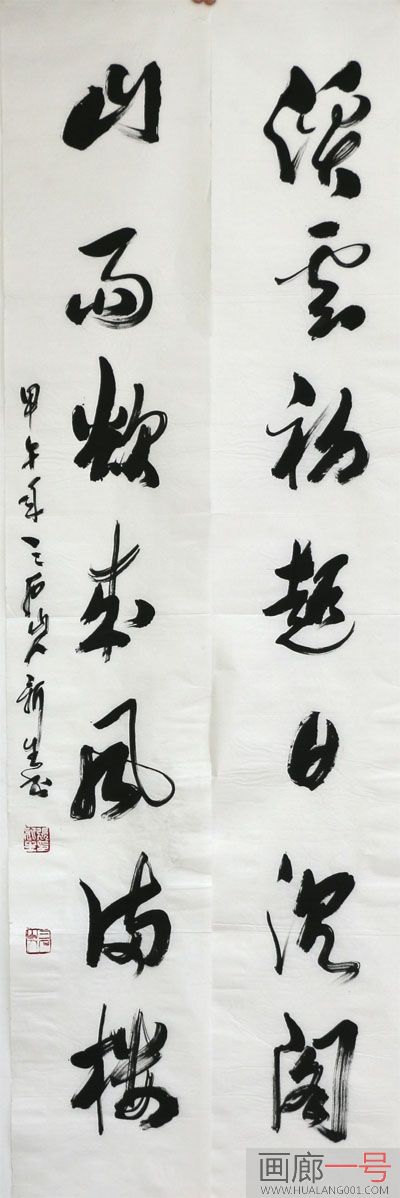 溪雲初起日沉阁
山雨欲来风满楼
甲午年三石山人新生书
画廊一号
WWW.HUALANG001.COM